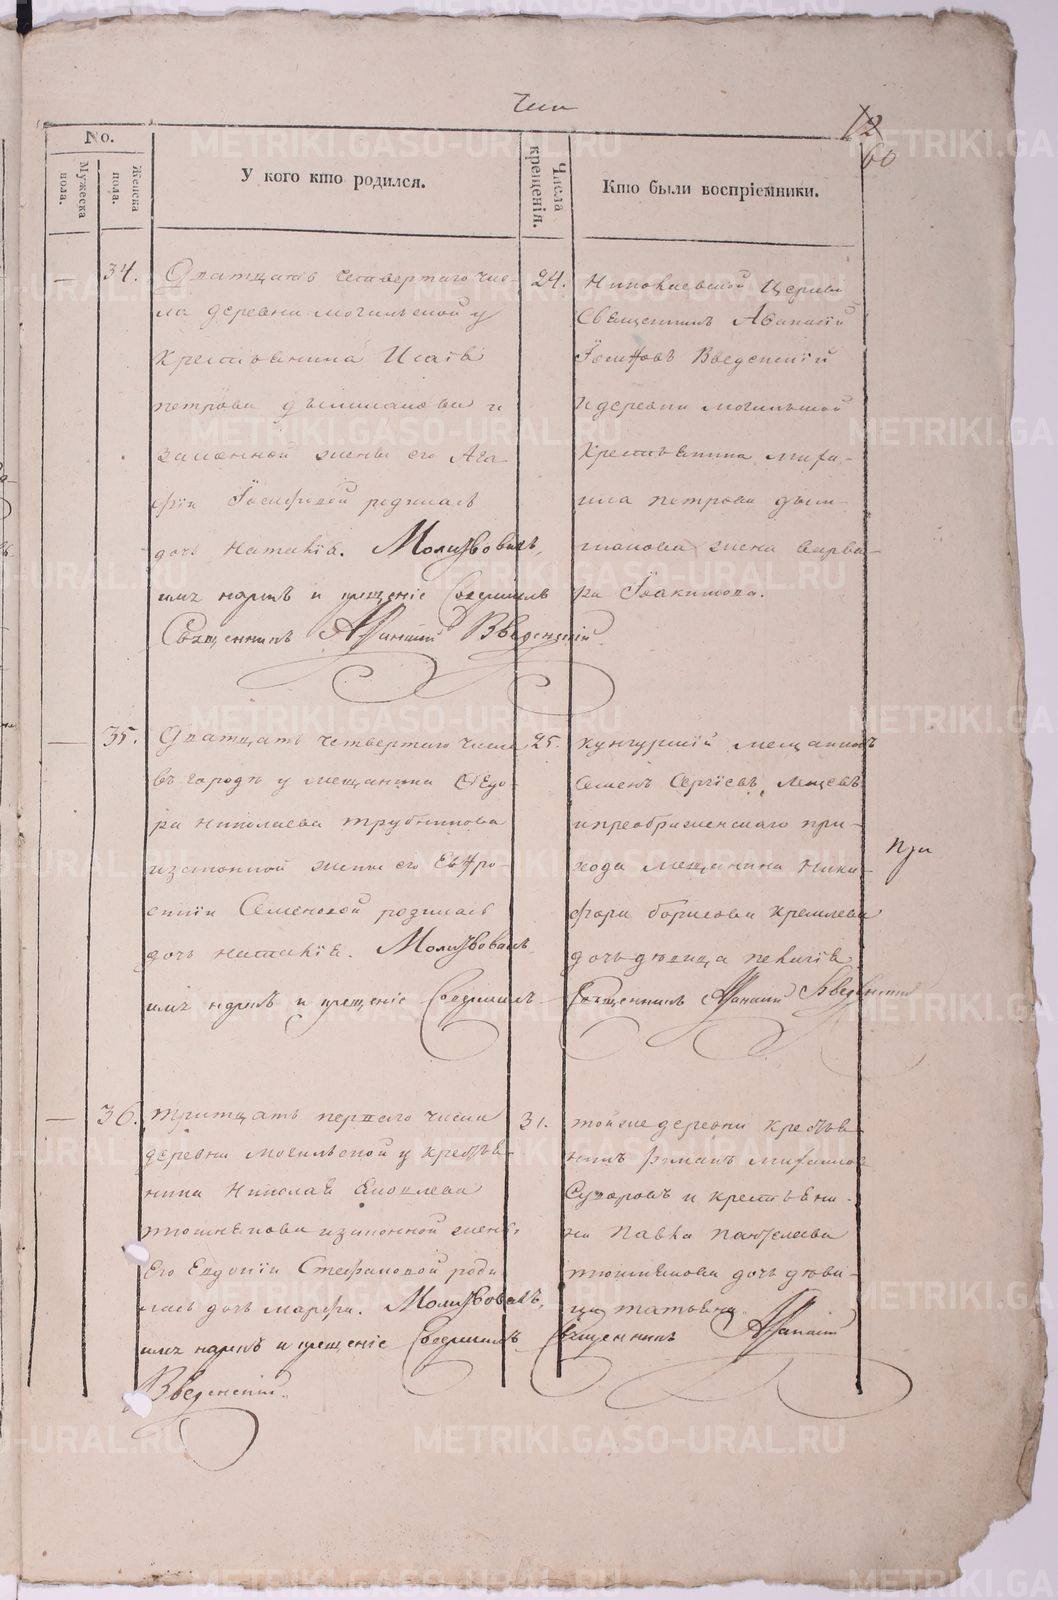 12
60
No.
Мужеска пола.
Женска пола.
У кого кто родился.
Числа крещенія.
Кто были воспріемники.
— 34.
Дватцать четвертаго чис-
ла деревни могильской у
крестьянина Исаія
петрова дымшакова и
законной жены его Ага-
фіи Іосифовой родилась
дочь наталія. Молитвовалъ,
имя нарекъ и крещеніе совершилъ
Священникъ Афанасій Введенскій.
24.
Николаевской церкви
Священникъ Афанасій
Іосифовъ Введенскій
и деревни могильской
крестьянина миха-
ила петрова дым-
шакова жена варва-
ра Іоакимова.
— 35.
Дватцать четвертаго числа
въ городѣ у мещанина Ѳедо-
ра николаева трубникова
изаконной жены его Евфро-
синіи Семеновой родилась
дочь наталія. Молитвовалъ
имя нарекъ и крещеніе совершилъ
25.
кунгурскій мещанинъ
Семенъ Сергіевъ
ипреображенскаго при-
хода мещанина ники-
фора борисова кремлева
дочь дѣвица пелагія
Священникъ Афанасій Введенскій
— 36.
тритцать перваго числа
деревни могильской у кресть-
нина николая Яковлева
изаконной жены
его Евдокіи Стефановой роди
лась дочь марфа. Молитвовалъ,
имя нарекъ и крещеніе совершилъ
31.
тойже деревни крестья
нинъ романъ михаилов
Суворовъ и крестьяни-
на павла пантелеева
дочь дѣви-
ца татьяна. 
Священникъ Афанасій
Введенскій.
METRIKI.GASO-URAL.RU